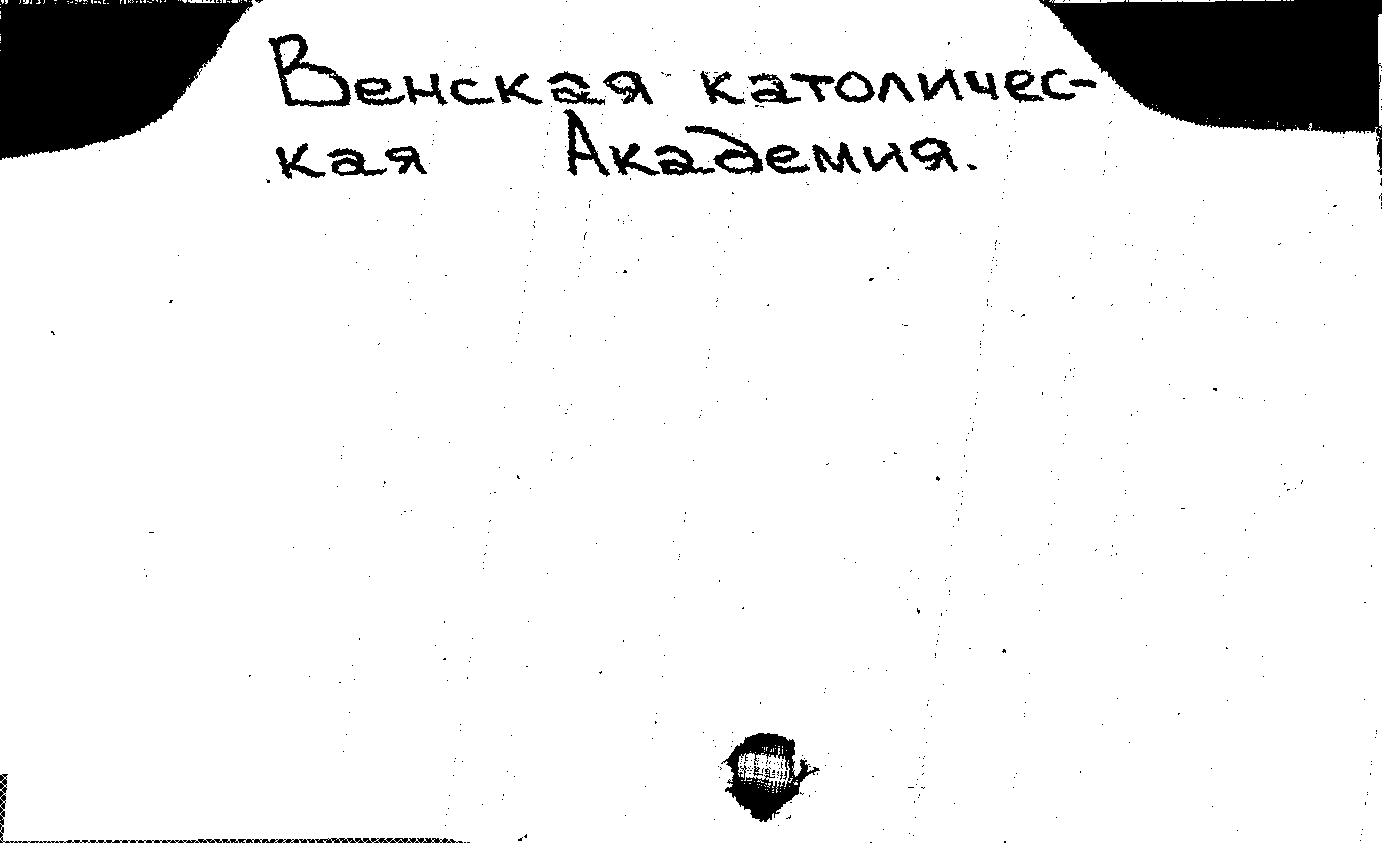 Венская католичес-
кая Академия.